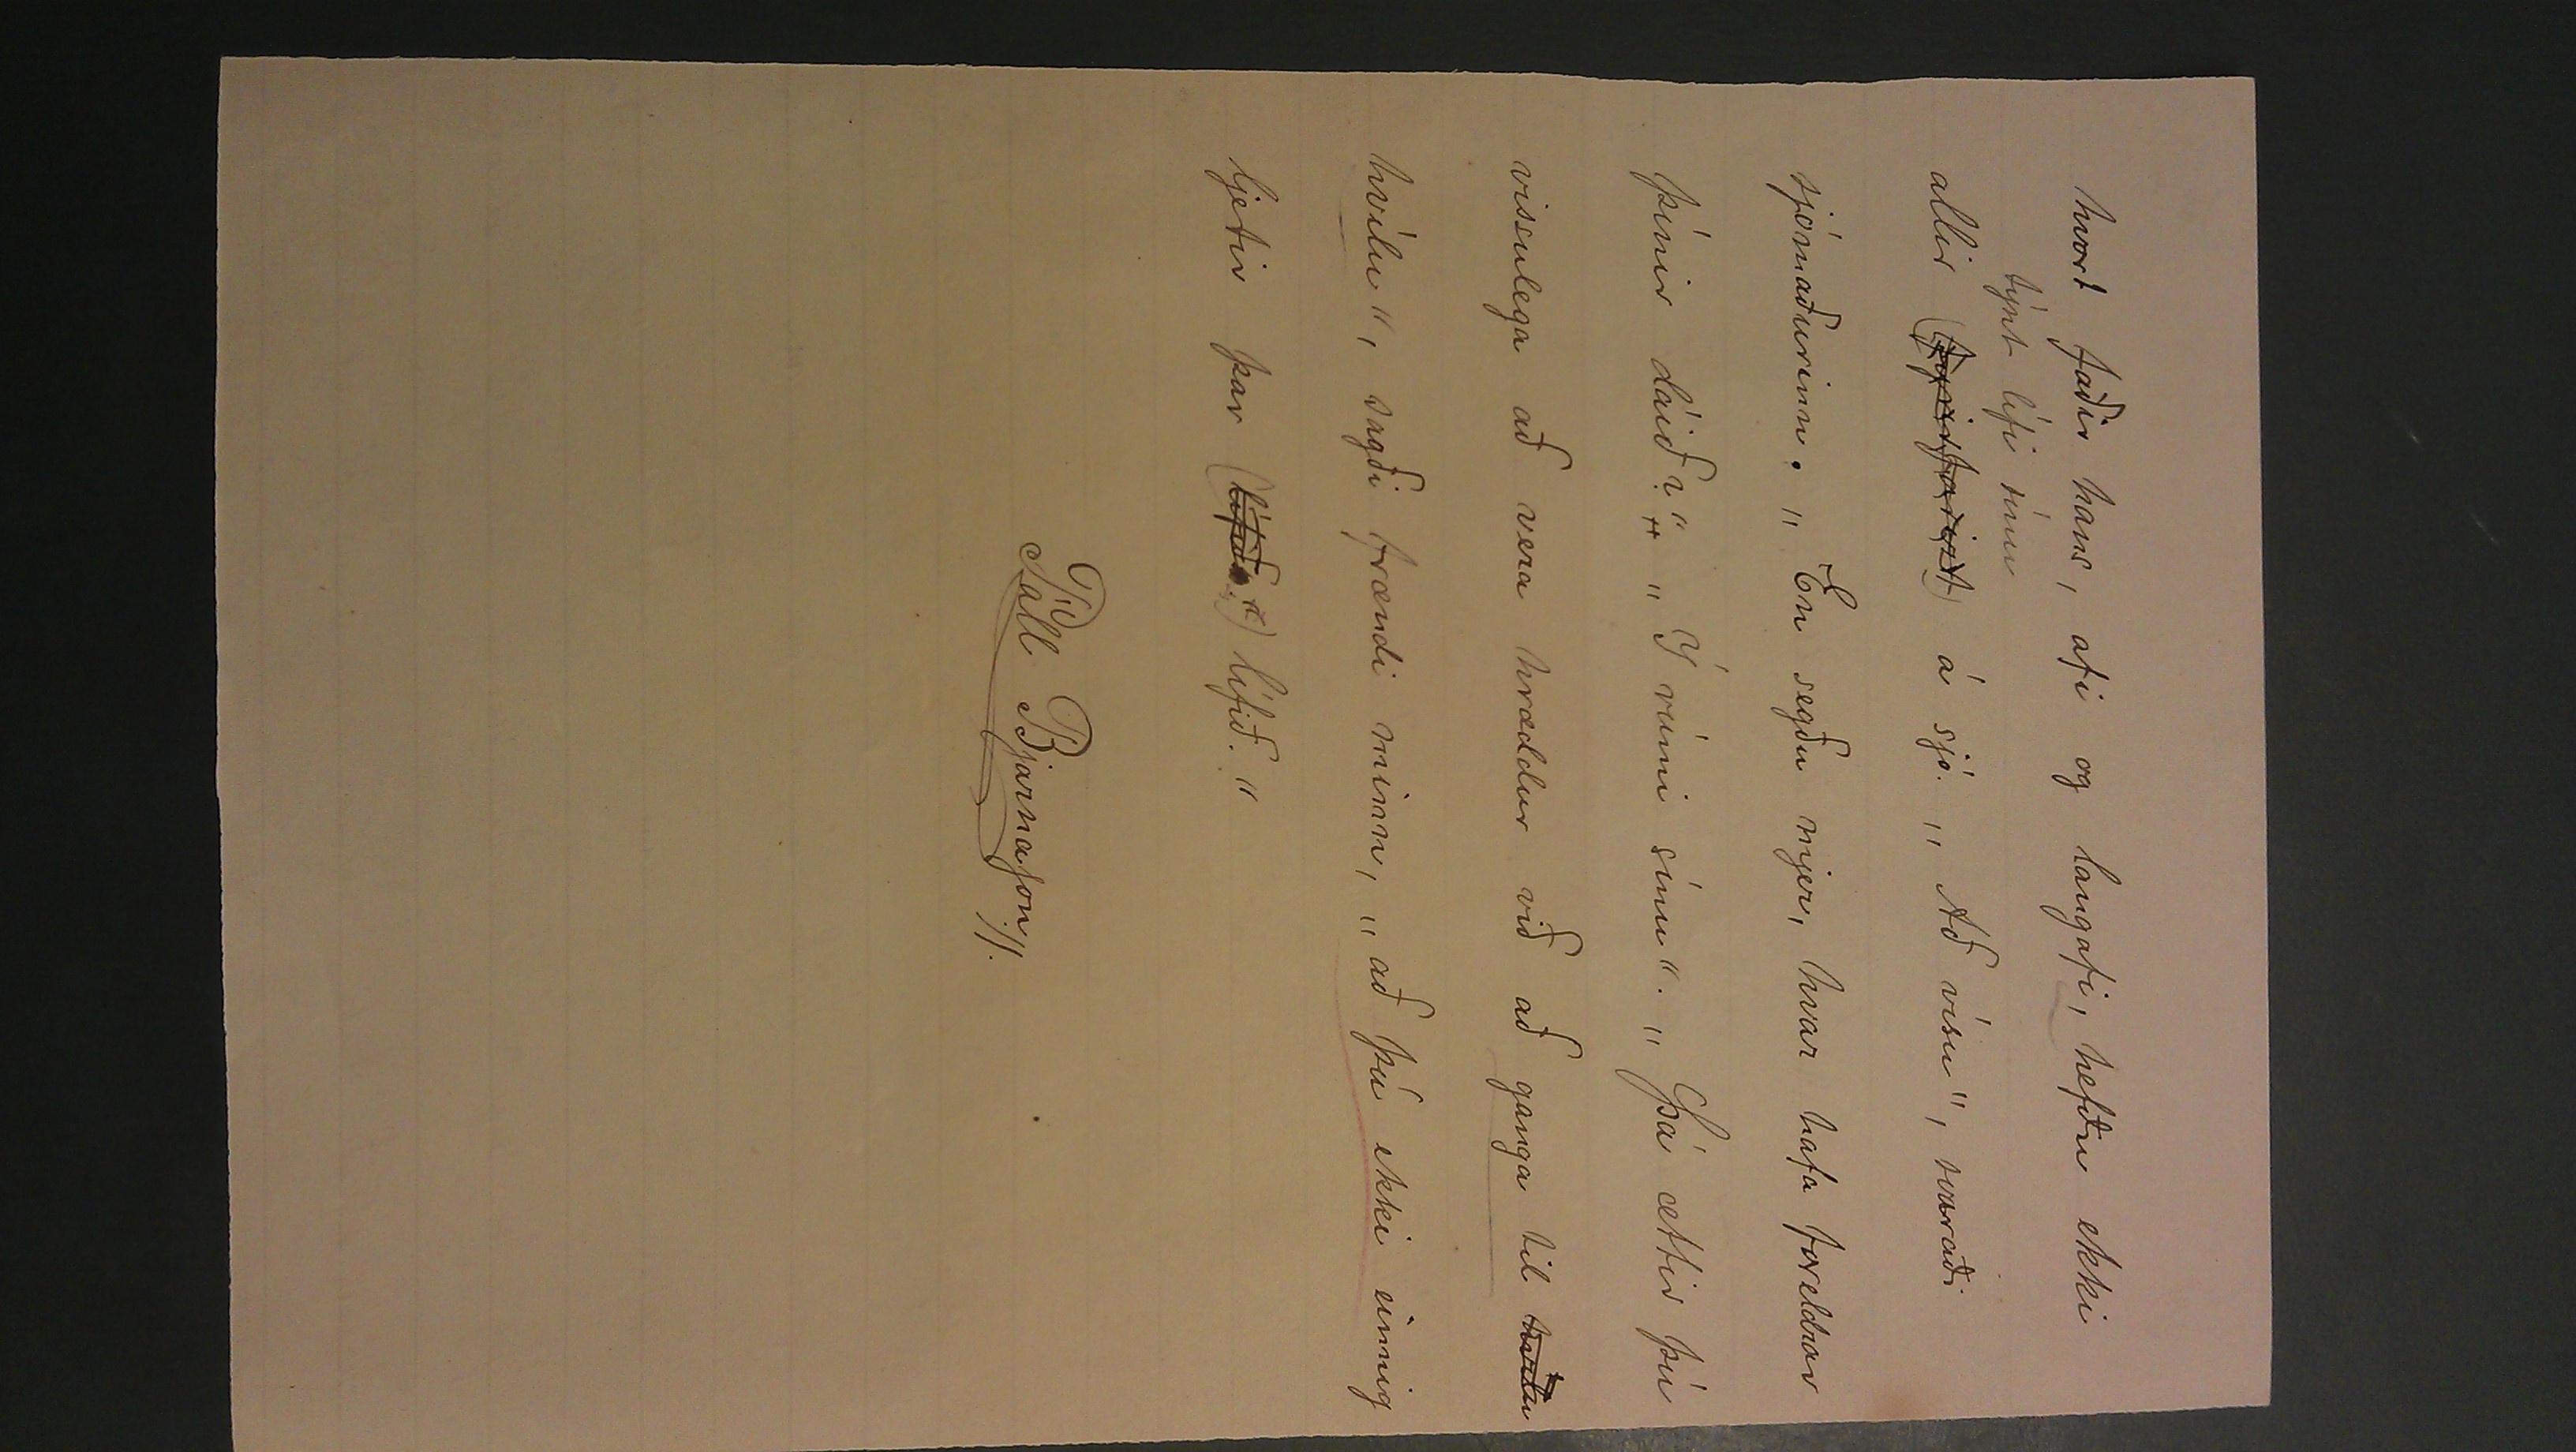 hvort faðir hans, afi og langafi, hefðu ekki
týnt lífi sínu
allir (fyrirfarist) á sjó. „Að vísu“, svaraði
sjómaðurinn. „En segðu mjer, hvar hafa foreldrar
þínir dáið?“ „Í rúmi sínu“. „Þá ættir þú
vissulega að vera hræddur við að ganga til
hvílu“, sagði frændi minn, „að þú ekki einnig
ljetir þar (lífið.“) lífið.“
Páll Bjarnason //.